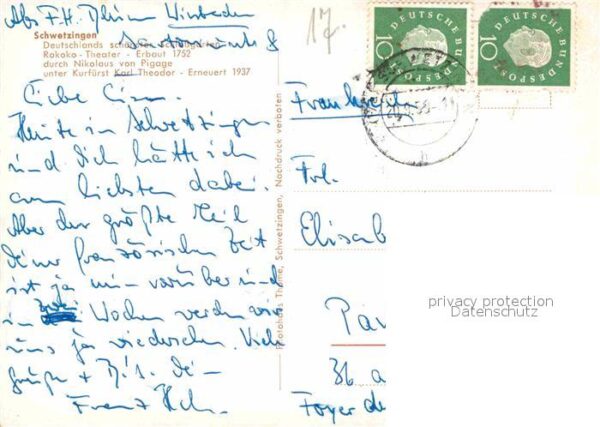 Abs. F.H. Wiesbaden
17.
Schwetzingen
Deutschlands schönster
Rokoko-Theater - Erbaut 1752
durch Nikolaus von Pigage
unter Kurfürst Karl Theodor - Erneuert 1937
DEUTSCHE BUNDESPOST
10
DEUTSCHE BUNDESPOST
10
Liebe
Heute in Schwetzingen
und Dich hätte ich
am liebsten dabei.
Aber der größte Teil
Deiner französischen Zeit
ist ja nun vorüber und
in zwei Wochen werden wir
uns ja wiedersehen. Viele
Grüße +
Franz
Photohaus Thome, Schwetzingen, Nachdruck verboten
Frankreich
Frl.
Elisab
Par
36 a
Foyer de
privacy protection
Datenschutz